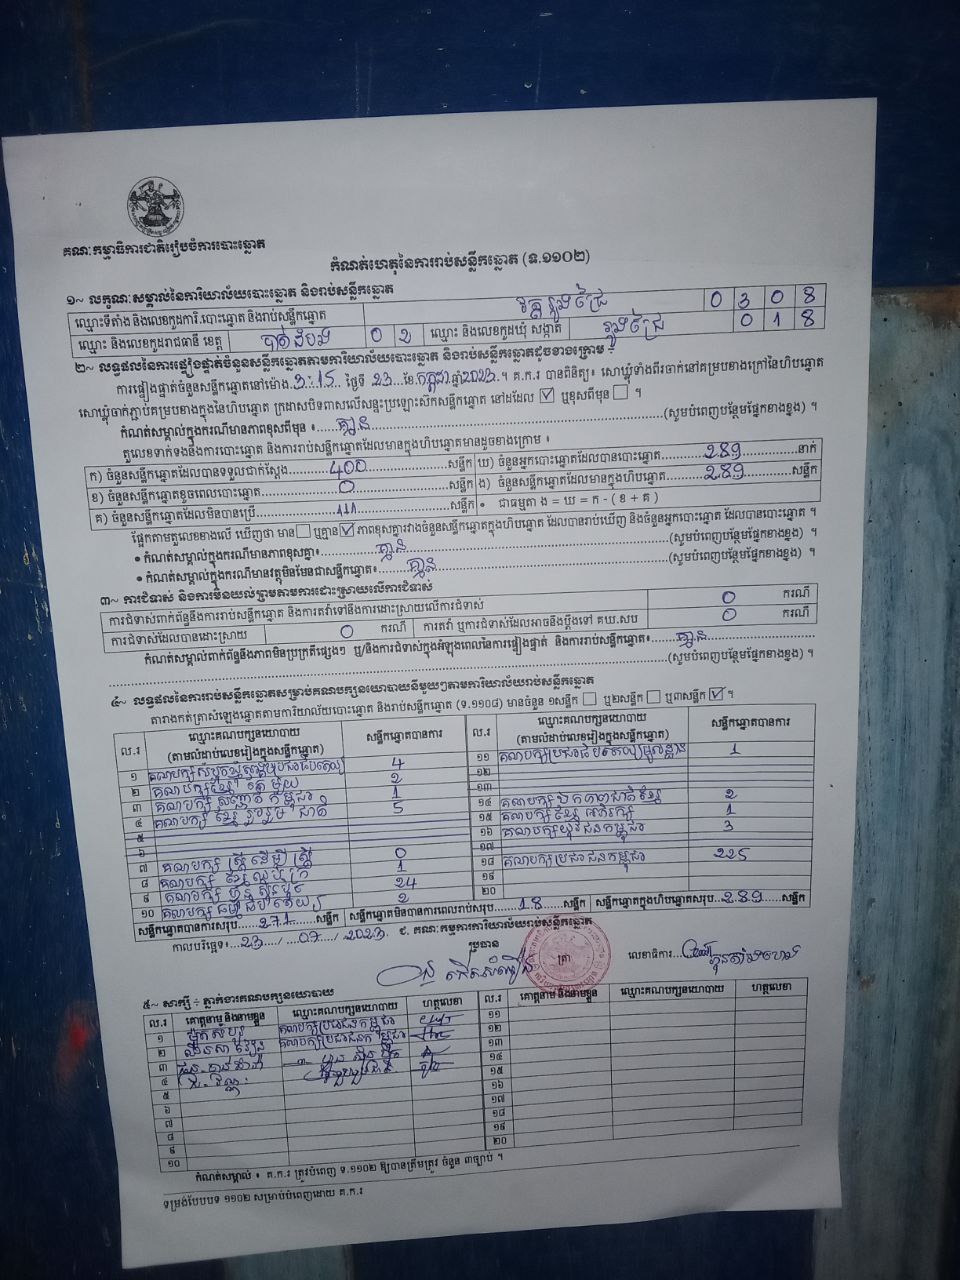 គណៈកម្មាធិការជាតិរៀបចំការបោះឆ្នោត
កំណត់ហេតុនៃការរាប់សន្លឹកឆ្នោត (ទ.១១០២)
១~ លក្ខណៈសម្គាល់នៃការិយាល័យបោះឆ្នោត និងរាប់សន្លឹកឆ្នោត
ឈ្មោះទីតាំង និងលេខកូដការិ.បោះឆ្នោត និងរាប់សន្លឹកឆ្នោត វត្ត ជ្រៃ 0 3 0 8
ឈ្មោះ និងលេខកូដរាជធានី ខេត្ត បាត់ដំបង 0 2 ឈ្មោះ និងលេខកូដឃុំ សង្កាត់ ជ្រៃ 0 1 8
២~ លទ្ធផលនៃការផ្ទៀងផ្ទាត់ចំនួនសន្លឹកឆ្នោតតាមការិយាល័យបោះឆ្នោត និងរាប់សន្លឹកឆ្នោតដូចខាងក្រោម ÷
ការផ្ទៀងផ្ទាត់ចំនួនសន្លឹកឆ្នោតនៅម៉ោង 3:15 ថ្ងៃទី 23 ខែ កក្កដា ឆ្នាំ 2023 ។ គ.ក.រ បានពិនិត្យ៖ សោឃ្លុំទាំងពីរចាក់នៅគម្របខាងក្រៅនៃហិបឆ្នោត
សោឃ្លុំចាក់ភ្ជាប់គម្របខាងក្នុងនៃហិបឆ្នោត ក្រដាសបិទពាសលើសន្ទះប្រឡោះស៊កសន្លឹកឆ្នោត នៅដដែល ☑ ឬខុសពីមុន ☐ ។
កំណត់សម្គាល់ក្នុងករណីមានភាពខុសពីមុន ៖ គ្មាន (សូមបំពេញបន្ថែមផ្នែកខាងខ្នង) ។
តួលេខទាក់ទងនឹងការបោះឆ្នោត និងការរាប់សន្លឹកឆ្នោតដែលមានក្នុងហិបឆ្នោតមានដូចខាងក្រោម ៖
ក) ចំនួនសន្លឹកឆ្នោតដែលបានទទួលជាក់ស្តែង 400 សន្លឹក ឃ) ចំនួនអ្នកបោះឆ្នោតដែលបានបោះឆ្នោត 289 នាក់
ខ) ចំនួនសន្លឹកឆ្នោតខូចពេលបោះឆ្នោត 0 សន្លឹក ង) ចំនួនសន្លឹកឆ្នោតដែលមានក្នុងហិបឆ្នោត 289 សន្លឹក
គ) ចំនួនសន្លឹកឆ្នោតដែលមិនបានប្រើ 111 សន្លឹក • ជាធម្មតា ង = ឃ = ក - ( ខ + គ )
ផ្អែកតាមតួលេខខាងលើ ឃើញថា មាន ☐ ឬគ្មាន ☑ ភាពខុសគ្នារវាងចំនួនសន្លឹកឆ្នោតក្នុងហិបឆ្នោត ដែលបានរាប់ឃើញ និងចំនួនអ្នកបោះឆ្នោត ដែលបានបោះឆ្នោត ។
• កំណត់សម្គាល់ក្នុងករណីមានភាពខុសគ្នា៖ គ្មាន (សូមបំពេញបន្ថែមផ្នែកខាងខ្នង) ។
• កំណត់សម្គាល់ក្នុងករណីមានវត្ថុមិនមែនជាសន្លឹកឆ្នោត៖ គ្មាន (សូមបំពេញបន្ថែមផ្នែកខាងខ្នង) ។
៣~ ការជំទាស់ និងការមិនយល់ព្រមតាមការដោះស្រាយលើការជំទាស់
ការជំទាស់ពាក់ព័ន្ធនឹងការរាប់សន្លឹកឆ្នោត និងការតវ៉ាទៅនឹងការដោះស្រាយលើការជំទាស់ 0 ករណី
ការជំទាស់ដែលបានដោះស្រាយ 0 ករណី ការតវ៉ា ឬការជំទាស់ដែលអាចនឹងប្តឹងទៅ គឃ.សប 0 ករណី
កំណត់សម្គាល់ពាក់ព័ន្ធនឹងភាពមិនប្រក្រតីផ្សេងៗ ឬ/និងការជំទាស់ក្នុងអំឡុងពេលនៃការផ្ទៀងផ្ទាត់ និងការរាប់សន្លឹកឆ្នោត៖ គ្មាន
(សូមបំពេញបន្ថែមផ្នែកខាងខ្នង) ។
៤~ លទ្ធផលនៃការរាប់សន្លឹកឆ្នោតសម្រាប់គណបក្សនយោបាយនីមួយៗតាមការិយាល័យរាប់សន្លឹកឆ្នោត
តារាងកត់ត្រាសំឡេងឆ្នោតតាមការិយាល័យបោះឆ្នោត និងរាប់សន្លឹកឆ្នោត (ទ.១១០៨) មានចំនួន ១សន្លឹក ☐ ឬ២សន្លឹក ☐ ឬ៣សន្លឹក ☑ ។
ល.រ ឈ្មោះគណបក្សនយោបាយ (តាមលំដាប់លេខរៀងក្នុងសន្លឹកឆ្នោត) សន្លឹកឆ្នោតបានការ ល.រ ឈ្មោះគណបក្សនយោបាយ (តាមលំដាប់លេខរៀងក្នុងសន្លឹកឆ្នោត) សន្លឹកឆ្នោតបានការ
១ គណបក្ស 4
២ គណបក្សខ្មែរ តែមួយ 2
៣ គណបក្ស កម្ពុជា 1
៤ គណបក្ស ខ្មែរ រួបរួម ជាតិ 5
៥
៦
៧ គណបក្ស ស្ត្រី ដើម្បី ស្ត្រី 0
៨ គណបក្ស ខ្មែរ ឈប់ក្រ 1
៩ គណបក្ស ហ្វ៊ុនស៊ិនប៉ិច 24
១០ គណបក្ស ធម្មាធិបតេយ្យ 2
១១ គណបក្សប្រជាធិបតេយ្យមូលដ្ឋាន 1
១២
១៣
១៤ គណបក្ស ឯកភាពជាតិខ្មែរ 2
១៥ គណបក្ស ខ្មែរ អភិរក្ស 1
១៦ គណបក្សយុវជនកម្ពុជា 3
១៧
១៨ គណបក្សប្រជាជនកម្ពុជា 225
១៩
២០
សន្លឹកឆ្នោតបានការសរុប 271 សន្លឹក សន្លឹកឆ្នោតមិនបានការពេលរាប់សរុប 18 សន្លឹក សន្លឹកឆ្នោតក្នុងហិបឆ្នោតសរុប 289 សន្លឹក
កាលបរិច្ឆេទ៖ 23 / 07 / 2023 ជ. គណៈកម្មការការិយាល័យរាប់សន្លឹកឆ្នោត
ប្រធាន លេខាធិការ
ត្រា
៥~ សាក្សី ÷ ភ្នាក់ងារគណបក្សនយោបាយ
ល.រ គោត្តនាម និងនាមខ្លួន ឈ្មោះគណបក្សនយោបាយ ហត្ថលេខា ល.រ គោត្តនាម និងនាមខ្លួន ឈ្មោះគណបក្សនយោបាយ ហត្ថលេខា
១ គណបក្សប្រជាជនកម្ពុជា ១១
២ គណបក្សប្រជាជនកម្ពុជា ១២
៣ ១៣
៤ ១៤
៥ ១៥
៦ ១៦
៧ ១៧
៨ ១៨
៩ ១៩
១០ ២០
កំណត់សម្គាល់ ៖ គ.ក.រ ត្រូវបំពេញ ទ.១១០២ ឱ្យបានត្រឹមត្រូវ ចំនួន ៣ច្បាប់ ។
ទម្រង់បែបបទ ១១០២ សម្រាប់បំពេញដោយ គ.ក.រ